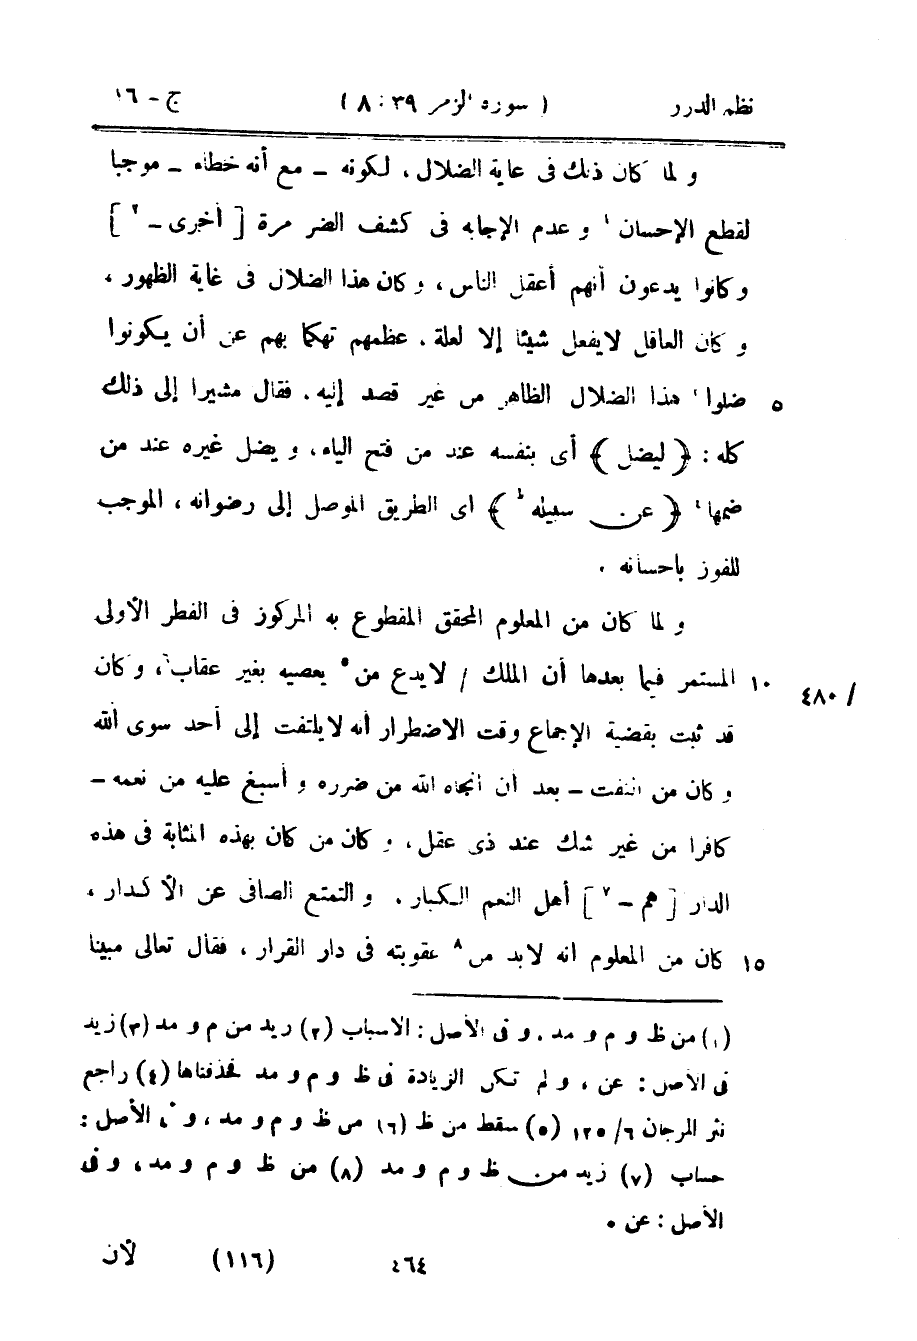 نظم الدرر ( سورة الزمر ٣٩ : ٨ ) ج - ١٦
و لما كان ذلك فى غاية الضلال ، لكونه - مع أنه خطاء - موجبا
لقطع الإحسان ١ و عدم الإجابه فى كشف الضر مرة [ أخرى - ٢ ]
و كانوا يدعون أنهم أعقل الناس ، و كان هذا الضلال فى غاية الظهور ،
و كان العاقل لايفعل شيئا إلا لعلة ، عظمهم تهكما بهم عن أن يكونوا
٥ ضلوا ٣ هذا الضلال الظاهر من غير قصد إليه ، فقال مشيرا إلى ذلك
كله : ﴿ ليضل ﴾ أى بنفسه عند من فتح الياء ، و يضل غيره عند من
ضمها ٤ ﴿ عن سبيله ط ﴾ اى الطريق الموصل إلى رضوانه ، الموجب
للفوز باحسانه .
و لما كان من المعلوم المحقق المقطوع به المركوز فى الفطر الأولى
١٠ المستمر فيما بعدها أن الملك / لايدع من ٥ يعصيه بغير عقاب ٦ ، و كان / ٤٨٠
قد ثبت بقضية الإجماع وقت الاضطرار أنه لايلتفت إلى أحد سوى الله
و كان من التفت - بعد أن أنجاه الله من ضرره و أسبغ عليه من نعمه -
كافرا من غير شك عند ذى عقل ، و كان من كان بهذه المثابة فى هذه
الدار [ هم - ٧ ] أهل النعم الكبار . و التمتع الصافى عن الأكدار ،
١٥ كان من المعلوم أنه لابد من ٨ عقوبته فى دار القرار ، فقال تعالى مبينا
(١) من ظ و م و مد ، و فى الأصل : الاسباب (٢) زيد من م و مد (٣) زيد
فى الأصل : عن ، و لم تكن الزيادة فى ظ و م و مد فحذفناها (٤) راجع
نثر المرجان ٦/ ١٢٥ (٥) سقط من ظ (٦) من ظ و م و مد ، و فى الأصل :
حساب (٧) زيد من ظ و م و مد (٨) من ظ و م و مد ، و فى
الأصل : عن .
٤٦٤ (١١٦) لأن